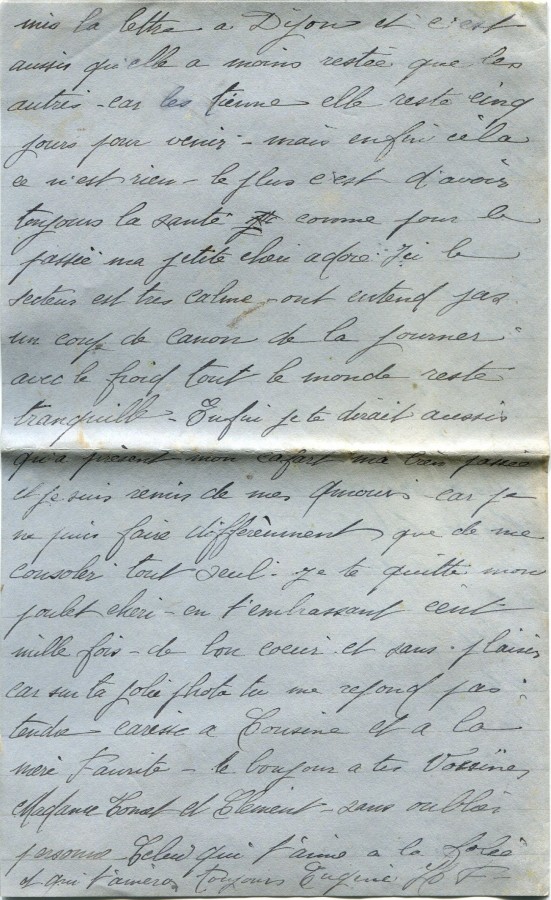 mis la lettre a Dijon et c'est
aussis qu'elle a moins restée que les
autres - car les tienne elle reste cinq
jours pour venir - mais enfin cèla
ce n'est rien - le plus c'est d'avoir
toujours la santé comme pour le
passée ma petite cheri adoré. Ici le
secteur est tres calme - ont entend pas
un coup de canon de la journer
avec le froid tout le monde reste
tranquille - Enfin je te dirait aussis
qu'a prèsent mon cafart ma bien passée
et je suis remis de mes amours car je
ne puis faire diffèrènment que de me
consoler tout seul - je te quitte mon
poulet cheri - en t'embrassant cent
mille fois - de bon coeur et sans plaisir
car sur ta jolie photo tu me repond pas
tendre caresse a Cousine et a la
mère Faurite - le bonjour a tes Voisines
Madame et Clèment - sans oublier
personne Celui qui t'aime a la folée
et qui t'amera toujours Eugène